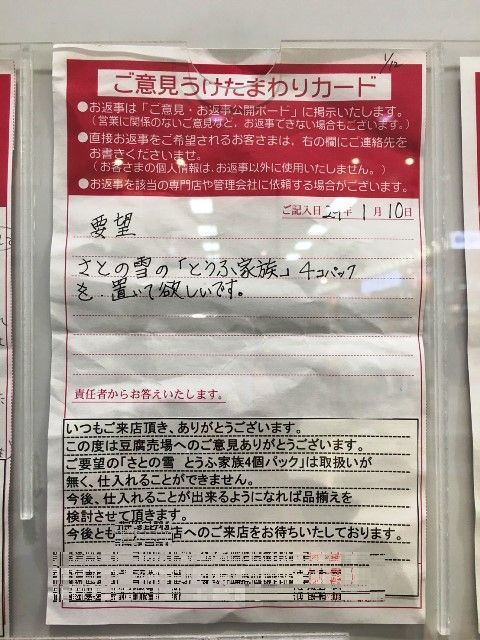 1/12
ご意見うけたまわりカード
●お返事は「ご意見・お返事公開ボード」に掲示いたします。
（営業に関係のないご意見など、お返事できない場合もございます。）
●直接お返事をご希望されるお客さまは、右の欄にご連絡先を
お書きくださいませ。
（お客さまの個人情報は、お返事以外に使用いたしません。）
●お返事を該当の専門店や管理会社に依頼する場合がございます。
ご記入日 29年 1月 10日
要望
さとの雪の「とうふ家族」4コパック
を置いて欲しいです。
責任者からお答えいたします。
いつもご来店頂き、ありがとうございます。
この度は豆腐売場へのご意見ありがとうございます。
ご要望の「さとの雪 とうふ家族4個パック」は取扱いが
無く、仕入れることができません。
今後、仕入れることが出来るようになれば品揃えを
検討させて頂きます。
今後とも 店へのご来店をお待ちいたしております。